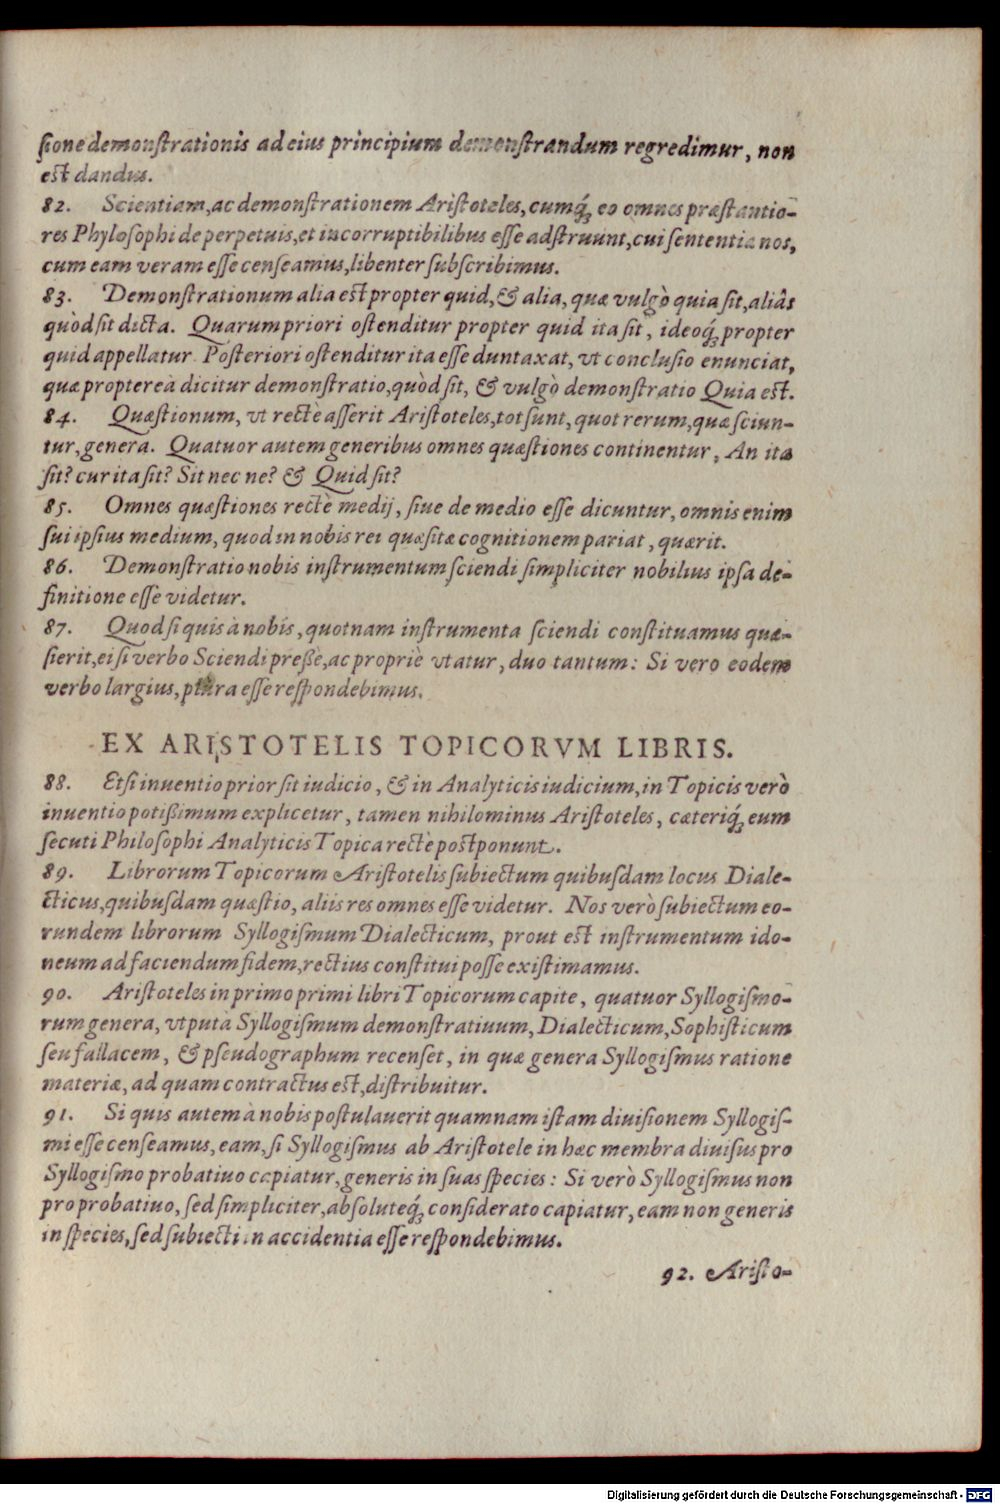 ſione demonſtrationis ad eius principium demonſtrandum regredimur, non
eſt dandus.
82. Scientiam, ac demonſtrationem Ariſtoteles, cumq́ꝫ eo omnes præſtantio-
res Phyloſophi de perpetuis, et incorruptibilibus eſſe adſtruunt, cui ſententiæ nos,
cum eam veram eſſe cenſeamus, libenter ſubſcribimus.
83. Demonſtrationum alia eſt propter quid, & alia, quæ vulgò quia ſit, aliâs
quòd ſit dicta. Quarum priori oſtenditur propter quid ita ſit, ideoq́ꝫ propter
quid appellatur. Poſteriori oſtenditur ita eſſe duntaxat, vt concluſio enunciat,
quæ propterea dicitur demonſtratio, quòd ſit, & vulgò demonſtratio Quia eſt.
84. Quæſtionum, vt rectè aſſerit Ariſtoteles, tot ſunt, quot rerum, quæ ſciun-
tur, genera. Quatuor autem generibus omnes quæſtiones continentur, An ita
ſit? cur ita ſit? Sit nec ne? & Quid ſit?
85. Omnes quæſtiones rectè medij, ſiue de medio eſſe dicuntur, omnis enim
ſui ipſius medium, quod in nobis rei quæſitæ cognitionem pariat, quærit.
86. Demonſtratio nobis inſtrumentum ſciendi ſimpliciter nobilius ipſa de-
finitione eſſe videtur.
87. Quod ſi quis à nobis, quotnam inſtrumenta ſciendi conſtituamus quæ-
ſierit, ei ſi verbo Sciendi preßè, ac propriè vtatur, duo tantum: Si vero eodem
verbo largius, plura eſſe reſpondebimus.
EX ARISTOTELIS TOPICORVM LIBRIS.
88. Etſi inuentio prior ſit iudicio, & in Analyticis iudicium, in Topicis verò
inuentio potißimum explicetur, tamen nihilominus Ariſtoteles, cæteriq́ꝫ eum
ſecuti Philoſophi Analyticis Topica rectè poſtponunt.
89. Librorum Topicorum Ariſtotelis ſubiectum quibuſdam locus Diale-
cticus, quibuſdam quæſtio, aliis res omnes eſſe videtur. Nos verò ſubiectum eo-
rundem librorum Syllogiſmum Dialecticum, prout eſt inſtrumentum ido-
neum ad faciendum fidem, rectius conſtitui poſſe exiſtimamus.
90. Ariſtoteles in primo primi libri Topicorum capite, quatuor Syllogiſmo-
rum genera, vtputà Syllogiſmum demonſtratiuum, Dialecticum, Sophiſticum
ſeu fallacem, & pſeudographum recenſet, in quæ genera Syllogiſmus ratione
materiæ, ad quam contractus eſt, diſtribuitur.
91. Si quis autem à nobis poſtulauerit quamnam iſtam diuiſionem Syllogiſ-
mi eſſe cenſeamus, eam, ſi Syllogiſmus ab Ariſtotele in hæc membra diuiſus pro
Syllogiſmo probatiuo capiatur, generis in ſuas ſpecies: Si verò Syllogiſmus non
pro probatiuo, ſed ſimpliciter, abſoluteq́ꝫ conſiderato capiatur, eam non generis
in ſpecies, ſed ſubiecti in accidentia eſſe reſpondebimus.
92. Ariſto-
Digitalisierung gefördert durch die Deutsche Forschungsgemeinschaft - DFG